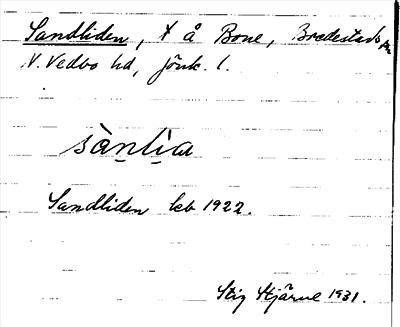 Sandliden, t å Bone, Bredestads sn
N. Vedbo hd, Jönk. l.
sàntia
Sandliden leb 1922.
Stig Hjärne 1931.